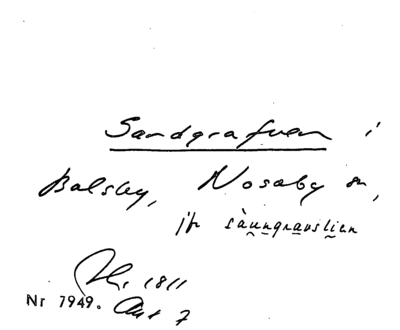 Sandgrafven i
Balsby, Nosaby sn,
jfr sàu̯ngravsli̯en
1811
Nr 7949. Akt 7